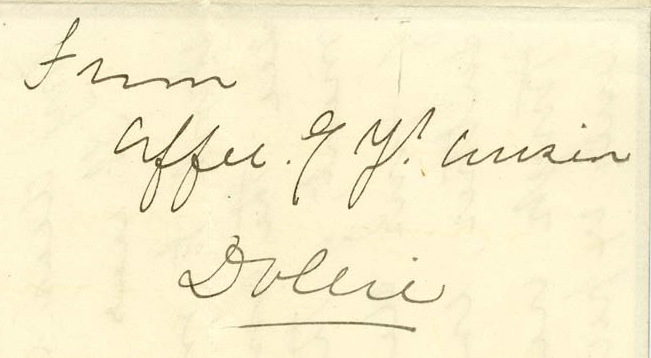 From
Affec. & Yr. Cousin
Dollie